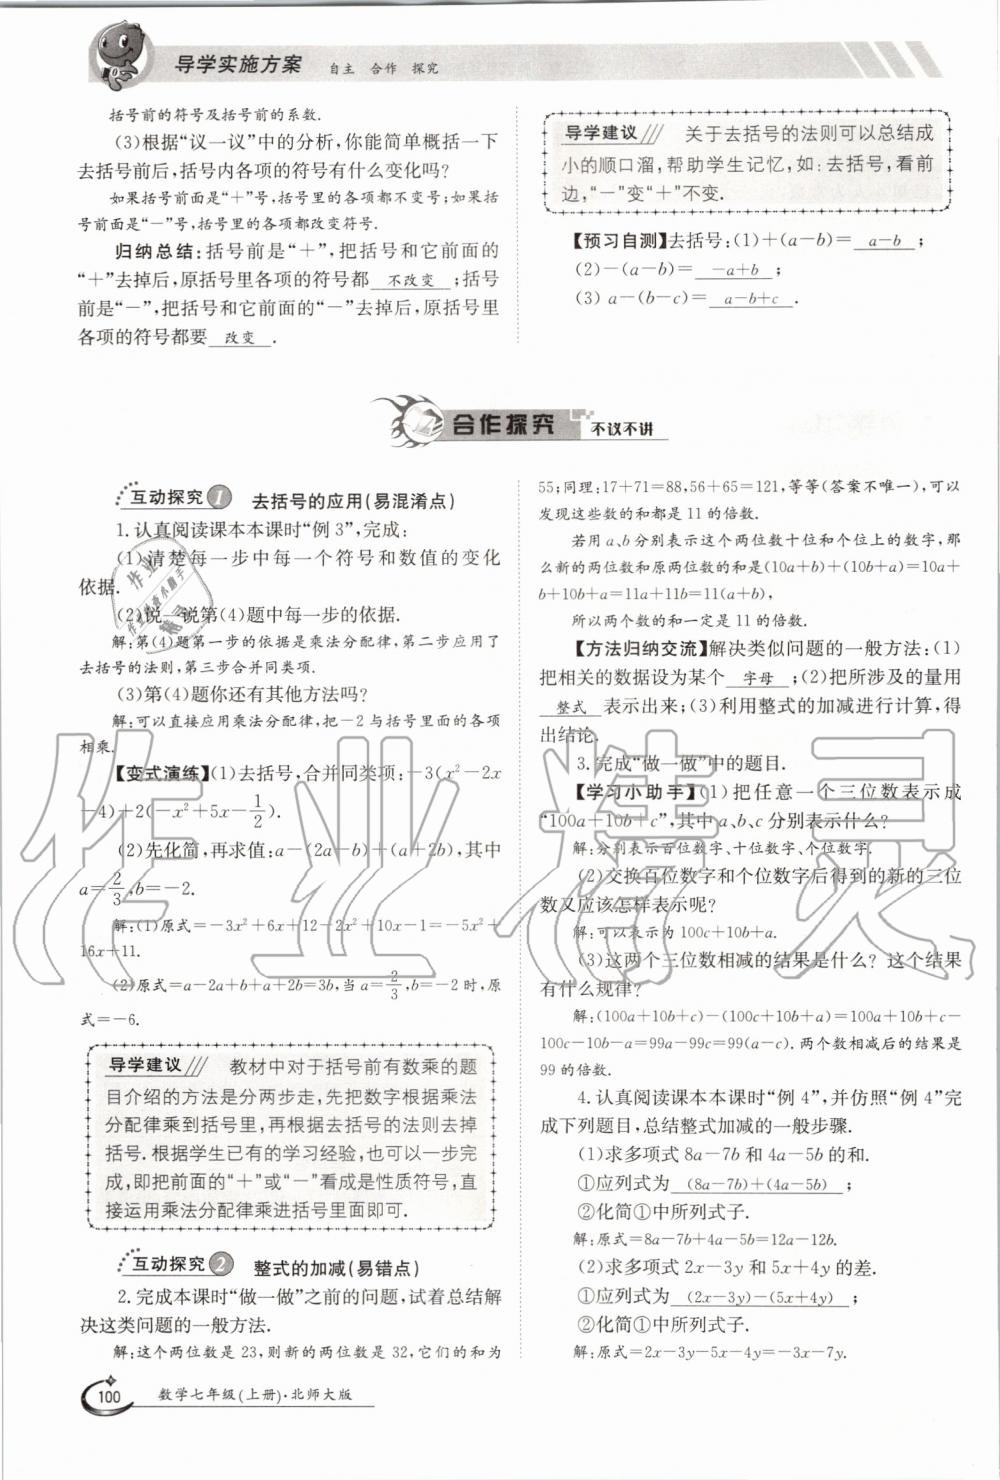 导学实施方案 自主 合作 探究
括号前的符号及括号前的系数.
(3)根据“议一议”中的分析,你能简单概括一下
去括号前后,括号内各项的符号有什么变化吗?
如果括号前面是“＋”号,括号里的各项都不变号;如果括
号前面是“－”号,括号里的各项都改变符号.
归纳总结:括号前是“＋”,把括号和它前面的
“＋”去掉后,原括号里各项的符号都 不改变 ;括号
前是“－”,把括号和它前面的“－”去掉后,原括号里
各项的符号都要 改变 .
导学建议 关于去括号的法则可以总结成
小的顺口溜,帮助学生记忆,如:去括号,看前
边,“－”变“＋”不变.
【预习自测】去括号:(1)＋(a－b)＝ a－b ;
(2)－(a－b)＝ －a＋b ;
(3) a－(b－c)＝ a－b＋c .
合作探究 不议不讲
互动探究 1 去括号的应用(易混淆点)
1.认真阅读课本本课时“例3”,完成:
(1)清楚每一步中每一个符号和数值的变化
依据.
(2)说一说第(4)题中每一步的依据.
解:第(4)题第一步的依据是乘法分配律,第二步应用了
去括号的法则,第三步合并同类项.
(3)第(4)题你还有其他方法吗?
解:可以直接应用乘法分配律,把－2与括号里面的各项
相乘.
【变式演练】(1)去括号,合并同类项:－3(x²－2x
－4)＋2(－x²＋5x－1/2).
(2)先化简,再求值:a－(2a－b)＋(a＋2b),其中
a＝2/3,b＝－2.
解:(1)原式＝－3x²＋6x＋12－2x²＋10x－1＝－5x²＋
16x＋11.
(2)原式＝a－2a＋b＋a＋2b＝3b,当a＝2/3,b＝－2时,原
式＝－6.
导学建议 教材中对于括号前有数乘的题
目介绍的方法是分两步走,先把数字根据乘法
分配律乘到括号里,再根据去括号的法则去掉
括号.根据学生已有的学习经验,也可以一步完
成,即把前面的“＋”或“－”看成是性质符号,直
接运用乘法分配律乘进括号里面即可.
互动探究 2 整式的加减(易错点)
2.完成本课时“做一做”之前的问题,试着总结解
决这类问题的一般方法.
解:这个两位数是23,则新的两位数是32,它们的和为
55;同理:17＋71＝88,56＋65＝121,等等(答案不唯一),可以
发现这些数的和都是11的倍数.
若用a、b分别表示这个两位数十位和个位上的数字,那
么新的两位数和原两位数的和是(10a＋b)＋(10b＋a)＝10a＋
b＋10b＋a＝11a＋11b＝11(a＋b),
所以两个数的和一定是11的倍数.
【方法归纳交流】解决类似问题的一般方法:(1)
把相关的数据设为某个 字母 ;(2)把所涉及的量用
整式 表示出来;(3)利用整式的加减进行计算,得
出结论.
3.完成“做一做”中的题目.
【学习小助手】(1)把任意一个三位数表示成
“100a＋10b＋c”,其中a、b、c分别表示什么?
解:分别表示百位数字、十位数字、个位数字.
(2)交换百位数字和个位数字后得到的新的三位
数又应该怎样表示呢?
解:可以表示为100c＋10b＋a.
(3)这两个三位数相减的结果是什么?这个结果
有什么规律?
解:(100a＋10b＋c)－(100c＋10b＋a)＝100a＋10b＋c－
100c－10b－a＝99a－99c＝99(a－c).两个数相减后的结果是
99的倍数.
4.认真阅读课本本课时“例4”,并仿照“例4”完
成下列题目,总结整式加减的一般步骤.
(1)求多项式8a－7b和4a－5b的和.
①应列式为 (8a－7b)＋(4a－5b) ;
②化简①中所列式子.
解:原式＝8a－7b＋4a－5b＝12a－12b.
(2)求多项式2x－3y和5x＋4y的差.
①应列式为 (2x－3y)－(5x＋4y) ;
②化简①中所列式子.
解:原式＝2x－3y－5x－4y＝－3x－7y.
100 数学七年级(上册)·北师大版
作业精灵